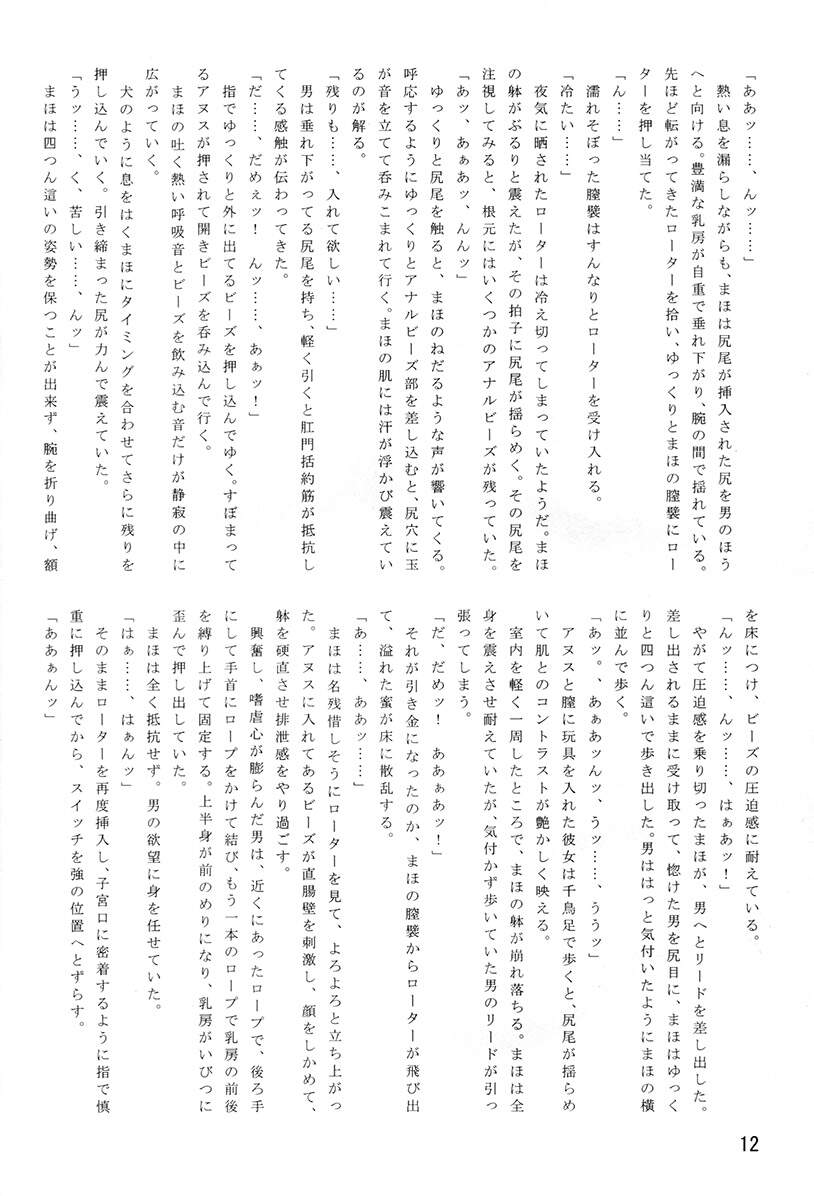 「ああッ……、んッ……」
　熱い息を漏らしながらも、まほは尻尾が挿入された尻を男のほう
へと向ける。豊満な乳房が自重で垂れ下がり、腕の間で揺れている。
先ほど転がってきたローターを拾い、ゆっくりとまほの膣襞にロー
ターを押し当てた。
「ん……」
　濡れそぼった膣襞はすんなりとローターを受け入れる。
「冷たい……」
　夜気に晒されたローターは冷え切ってしまっていたようだ。まほ
の躰がぶるりと震えたが、その拍子に尻尾が揺らめく。その尻尾を
注視してみると、根元にはいくつかのアナルビーズが残っていた。
「あッ、あぁあッ、んんッ」
　ゆっくりと尻尾を触ると、まほのねだるような声が響いてくる。
呼応するようにゆっくりとアナルビーズ部を差し込むと、尻穴に玉
が音を立てて呑みこまれて行く。まほの肌には汗が浮かび震えてい
るのが解る。
「残りも……、入れて欲しい……」
　男は垂れ下がってる尻尾を持ち、軽く引くと肛門括約筋が抵抗し
てくる感触が伝わってきた。
「だ……、だめぇッ！　んッ……、あぁッ！」
　指でゆっくりと外に出てるビーズを押し込んでゆく。すぼまって
るアヌスが押されて開きビーズを呑み込んで行く。
　まほの吐く熱い呼吸音とビーズを飲み込む音だけが静寂の中に
広がっていく。
　犬のように息をはくまほにタイミングを合わせてさらに残りを
押し込んでいく。引き締まった尻が力んで震えていた。
「うッ……、く、苦しい……、んッ」
　まほは四つん這いの姿勢を保つことが出来ず、腕を折り曲げ、額
を床につけ、ビーズの圧迫感に耐えている。
「んッ……、んッ……、はぁあッ！」
　やがて圧迫感を乗り切ったまほが、男へとリードを差し出した。
差し出されるままに受け取って、惚けた男を尻目に、まほはゆっく
りと四つん這いで歩き出した。男ははっと気付いたようにまほの横
に並んで歩く。
「あッ。、あぁあッんッ、うッ……、ううッ」
　アヌスと膣に玩具を入れた彼女は千鳥足で歩くと、尻尾が揺らめ
いて肌とのコントラストが艶かしく映える。
　室内を軽く一周したところで、まほの躰が崩れ落ちる。まほは全
身を震えさせ耐えていたが、気付かず歩いていた男のリードが引っ
張ってしまう。
「だ、だめッ！　ああぁあッ！」
　それが引き金になったのか、まほの膣襞からローターが飛び出
て、溢れた蜜が床に散乱する。
「あ……、ああッ……」
　まほは名残惜しそうにローターを見て、よろよろと立ち上がっ
た。アヌスに入れてあるビーズが直腸壁を刺激し、顔をしかめて、
躰を硬直させ排泄感をやり過ごす。
　興奮し、嗜虐心が膨らんだ男は、近くにあったロープで、後ろ手
にして手首にロープをかけて結び、もう一本のロープで乳房の前後
を縛り上げて固定する。上半身が前のめりになり、乳房がいびつに
歪んで押し出していた。
　まほは全く抵抗せず。男の欲望に身を任せていた。
「はぁ……、はぁんッ」
　そのままローターを再度挿入し、子宮口に密着するように指で慎
重に押し込んでから、スイッチを強の位置へとずらす。
「ああぁんッ」
12